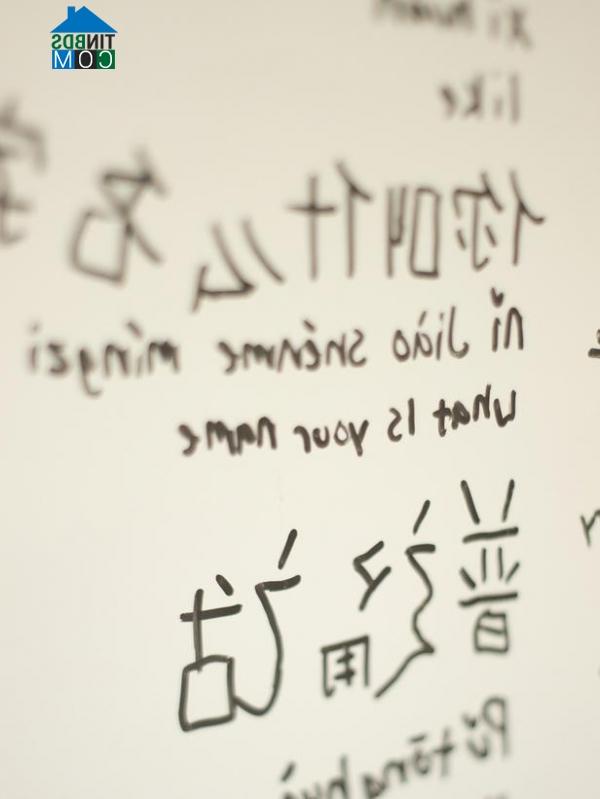 TINBDS
COM
xi huan
like
你叫什么名字
nǐ Jiào shénme míngzi
what Is your name
普通话
Pǔtōnghuà